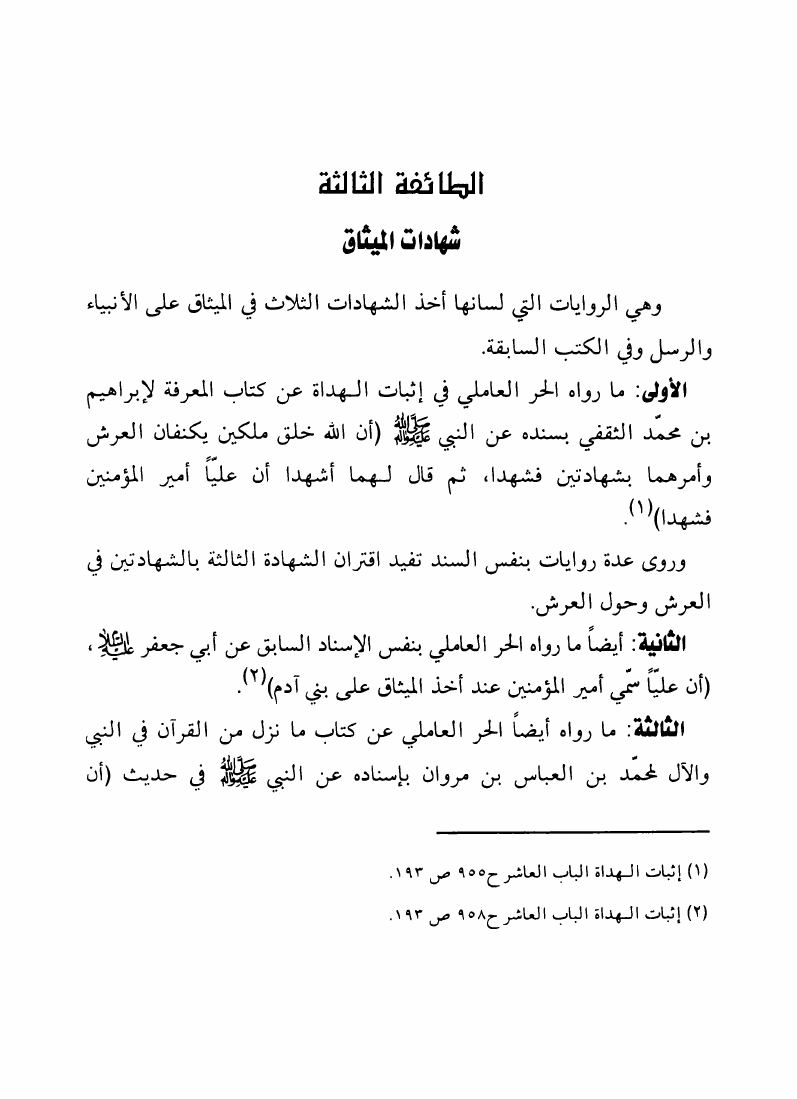 الطائفة الثالثة
شهادات الميثاق
وهي الروايات التي لسانها أخذ الشهادات الثلاث في الميثاق على الأنبياء
والرسل وفي الكتب السابقة.
الأولى: ما رواه الحر العاملي في إثبات الـهداة عن كتاب المعرفة لإبراهيم
بن محمّد الثقفي بسنده عن النبي ﷺ (أن الله خلق ملكين يكنفان العرش
وأمرهما بشهادتين فشهدا، ثم قال لـهما أشهدا أن عليّاً أمير المؤمنين
فشهدا)(١).
وروى عدة روايات بنفس السند تفيد اقتران الشهادة الثالثة بالشهادتين في
العرش وحول العرش.
الثانية: أيضاً ما رواه الحر العاملي بنفس الإسناد السابق عن أبي جعفر عليه السلام،
(أن عليّاً سمّي أمير المؤمنين عند أخذ الميثاق على بني آدم)(٢).
الثالثة: ما رواه أيضاً الحر العاملي عن كتاب ما نزل من القرآن في النبي
والآل لمحمّد بن العباس بن مروان بإسناده عن النبي ﷺ في حديث (أن
(١) إثبات الـهداة الباب العاشر ح٩٥٥ ص ١٩٣.
(٢) إثبات الـهداة الباب العاشر ح٩٥٨ ص ١٩٣.